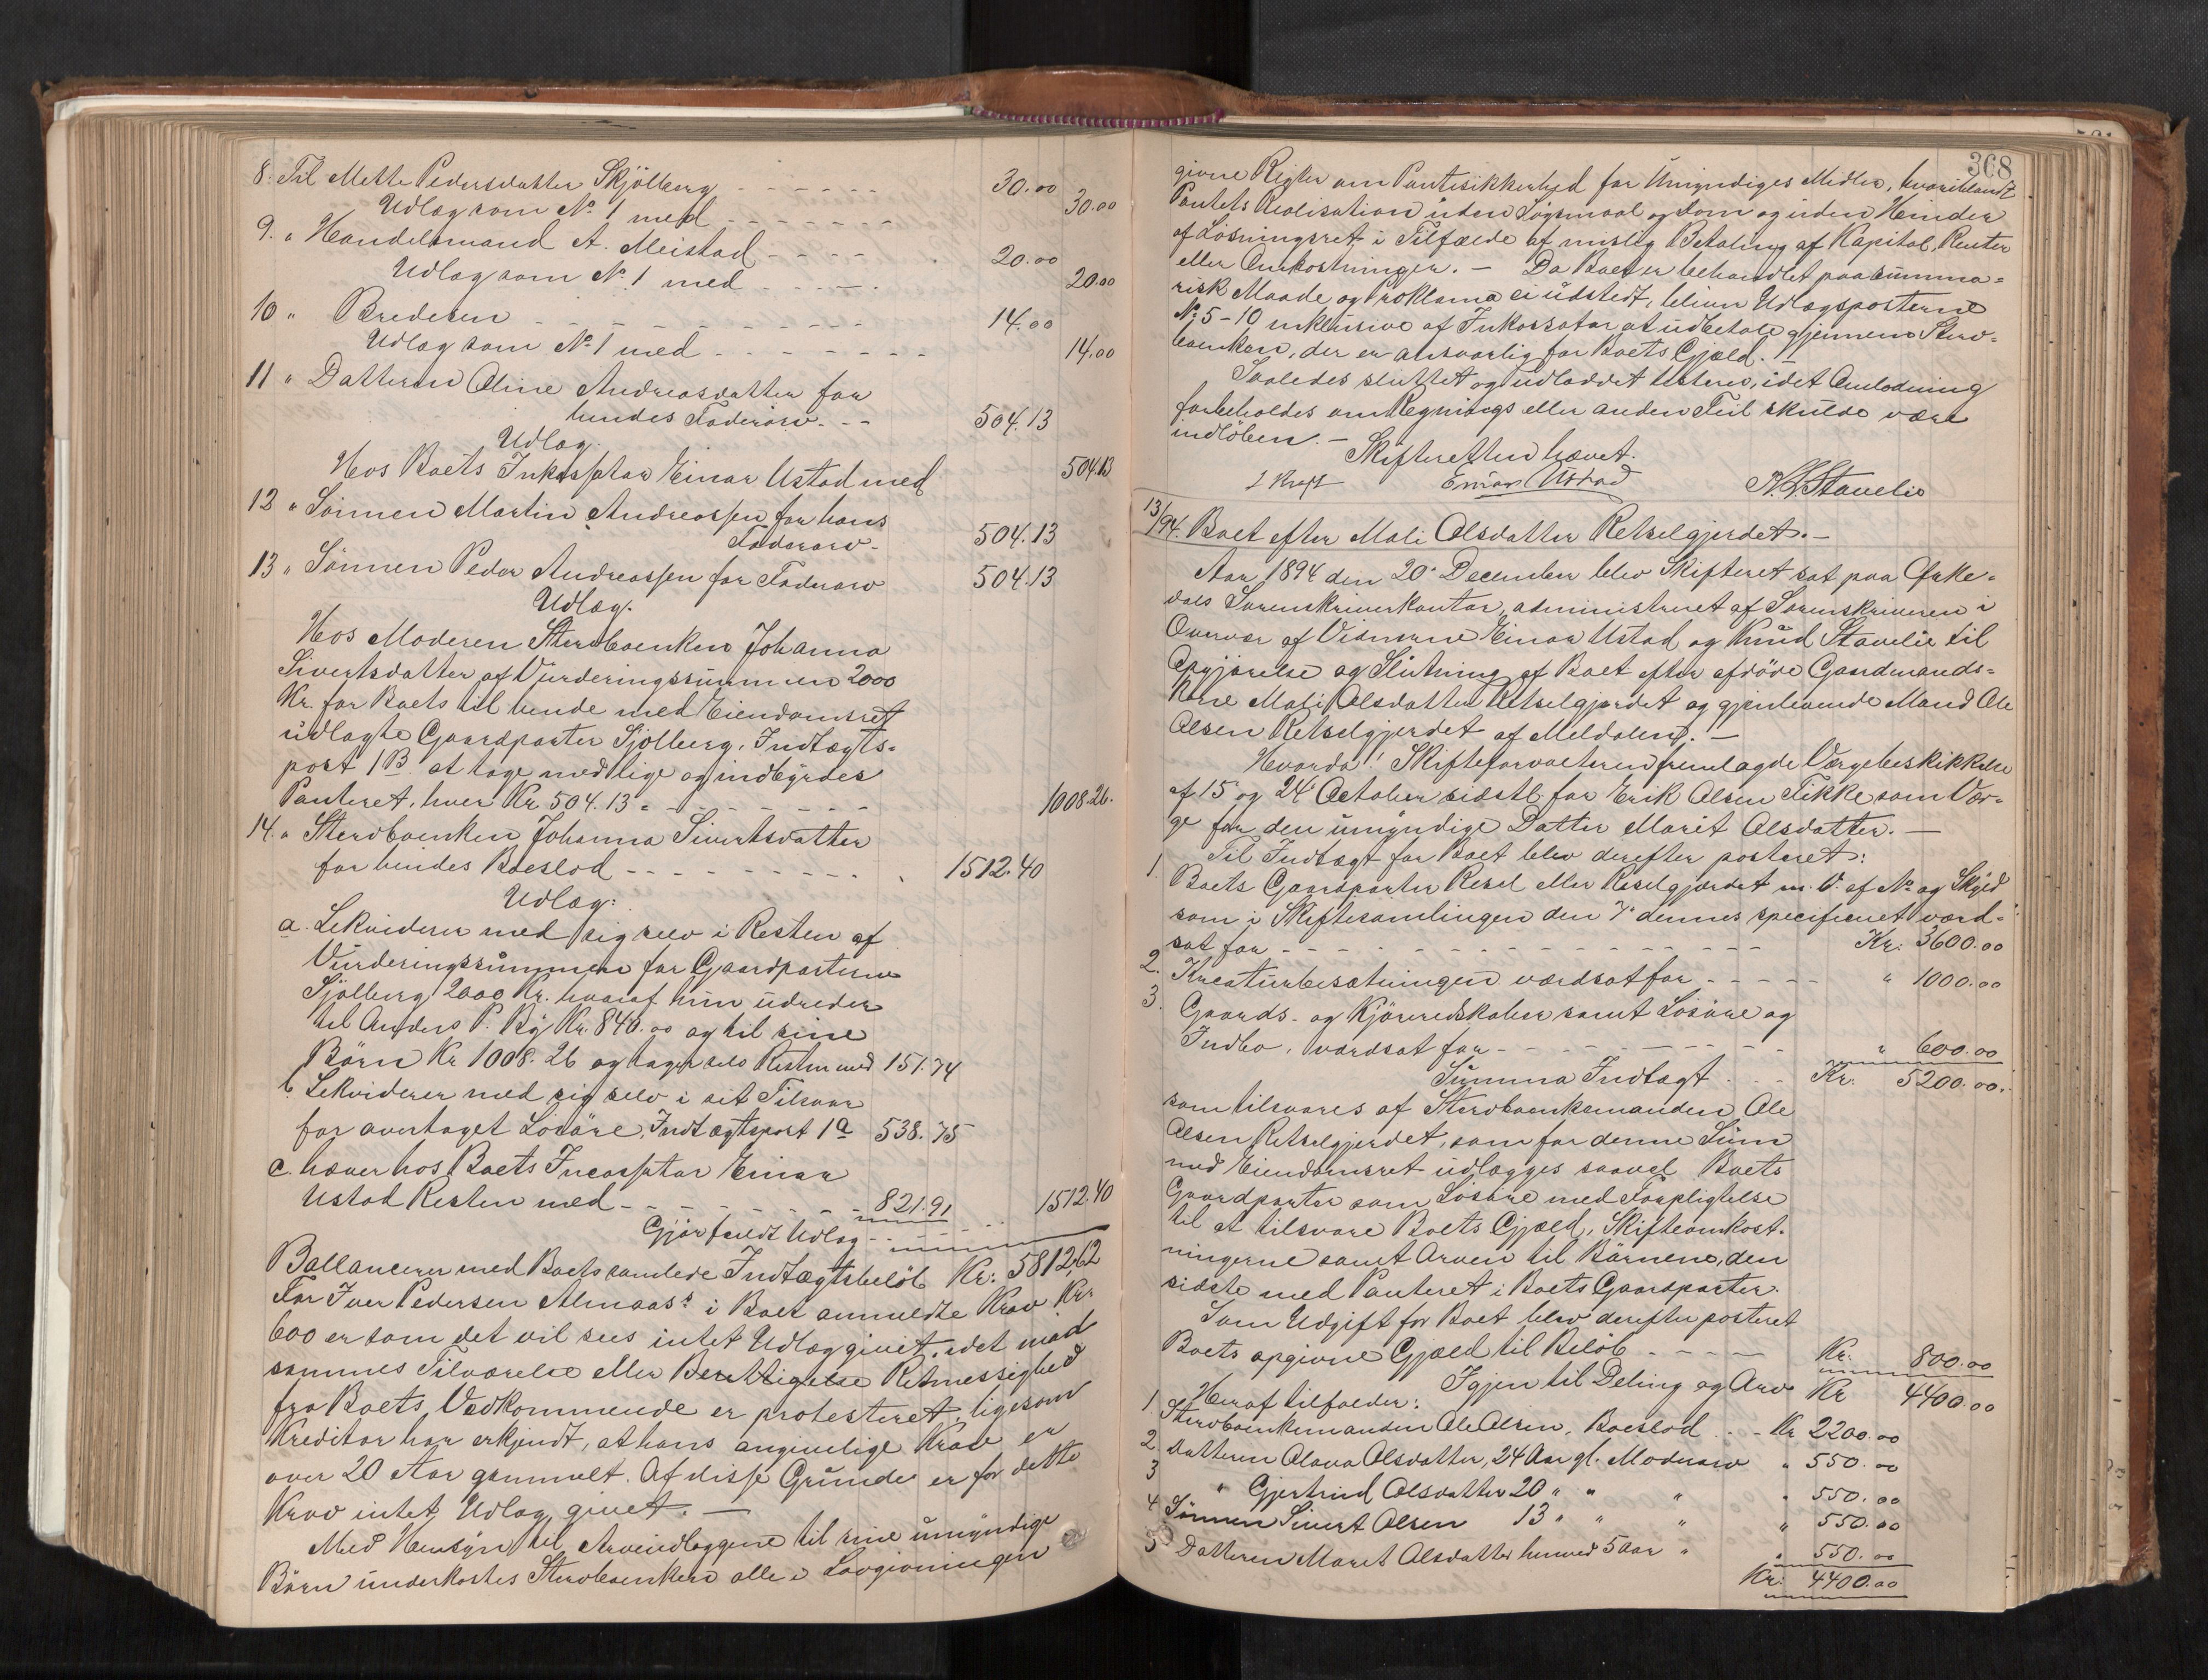 8. Til Mette Pedersdatter Skjölberg - - - - - - 30.00
Udlæg som No 1 med - - - - - - 30.00
9. " Handelsmand A. Meistad - - - - 20.00
Udlæg som No 1 med - - - - 20.00
10 " Bredesen - - - - - - - - - 14.00
Udlæg som No 1 med - - - - - - - 14.00
11 " Datteren Oline Andreasdatter for
hendes Faderarv - - 504.13
Udlæg.
Hos Boets Inkassator Einar Ustad med 504.13
12 " Sönnen Martin Andreassen for hans
Faderarv - 504.13
13 " Sönnen Peder Andreassen for Faderarv 504.13
Udlæg.
Hos Moderen Stervboenken Johanna
Sivertsdatter af Vurderingssummen 2000
Kr. for Boets til hende med Eiendomsret
udlagte Gaardparter Sjölberg, Indtægts-
post 1 B. at tage med lige og indbyrdes
Panteret, hver Kr 504.13 = - - - - - - - 1008.26.
14. " Stervboenken Johanna Sivertsdatter
for hendes Boeslod - - - - - - - - - - 1512.40
Udlæg:
a. Lekviderer med sig selv i Resten af
Vurderingssummen for Gaardparterne
Sjölberg 2000 Kr. hvoraf hun udreder
til Anders P. By Kr. 840.00 og til sine
Börn Kr 1008.26 og tager selv Resten med 151.74
b. Lekviderer med sig selv i sit Tilsvar
for overtaget Lösöre, Indtægtspost 1 a 538.75
c. hæver hos Boets Incassator Einar
Ustad Resten med - - - - - - - 821.91 1512.40
Gjör fuldt Udlæg - - -
Ballancerer med Boets samlede Indtægtsbelöb Kr: 5812,62
For Iver Pedersen Almaas's i Boet anmeldte Krav Kr.
600 er som det vil sees intet Udlæg givet, idet mod
sammes Tilværelse eller Berettigelse Retmessighed
fra Boets Vedkommende er protesteret, ligesom
Kreditor har erkjendt, at hans angivelige Krav er
over 20 Aar gammelt. Af disse Grunde er for dette
Krav intet Udlæg givet. —
Med Hensyn til Arveudlæggene til sine umyndige
Börn underkastes Stervboenken alle i Lovgivningen
368
givne Regler om Pantesikkerhed for Umyndiges Midler, hvoriblandt
Pantets Realisation uden Søgsmaal og Dom og uden Hinder
af Løsningsret i Tilfælde af mislig Betaling af Kapital, Renter
eller Omkostninger. — Da Boet er behandlet paa summa-
risk Maade og Proklama ei udstedt, bliver Udlægsposterne
No 5-10 inklusive af Inkassator at udbetale gjennem Sterv-
boenken, der er ansvarlig for Boets Gjæld. —
Saaledes sluttet og udloddet testeres, idet Omlodning
forbeholdes om Regnings eller anden Feil skulde være
indlöben. —
Skifteretten hævet.
Einar Ustad K. Stavelie
13/94. Boet efter Mali Olsdatter Retselgjerdet. —
Aar 1894 den 20' December blev Skifteret sat paa Orke-
dals Sorenskriverkontor, administreret af Sorenskriveren i
Overvær af Vidnerne Einar Ustad og Knud Stavelie til
Opgjørelse og Slutning af Boet efter afdöde Gaardmands-
kone Mali Olsdatter Retselgjerdet og gjenlevende Mand Ole
Olsen Retselgjerdet af Meldalen. —
Hvorda: Skifteforvalteren fremlagde Værgebeskikkelse
af 15' og 24' October sidstl. for Erik Olsen Fikke som Vær-
ge for den umyndige Datter Marit Olsdatter. —
Til Indtægt for Boet blev derefter posteret:
1. Boets Gaardparter Resel eller Reselgjærdet m. V. af No og Skyld
som i Skiftesamlingen den 7' dennes specificeret værd-
sat for - - - - - - - - - - - - - - - - Kr: 3600.00
2. Kreaturbesætningen værdsat for - - - - - " 1000.00
3. Gaards- og Kjöreredskaber samt Lösöre og
Indbo, værdsat for - - - - - - - - - - " 600.00
Summa Indtægt - - - Kr. 5200.00.
som tilsvares af Stervboenkemanden Ole
Olsen Retselgjerdet, som for denne Sum
med Eiendomsret udlægges saavel Boets
Gaardparter som Lösöre med Forpligtelse
til at tilsvare Boets Gjæld, Skifteomkost-
ningerne samt Arven til Börnene, den
sidste med Panteret i Boets Gaardparter.
Som Udgift for Boet blev derefter posteret
Boets opgivne Gjæld til Belöb - - - - - Kr. 800.00
Igjen til Deling og Arv Kr 4400.00
Heraf tilfalder:
1 Stervboenkemanden Ole Olsen, Boeslod - - - Kr 2200.00
2 Datteren Olava Olsdatter, 24 Aar gl. Moderarv " 550.00
3 " Gjertrud Olsdatter 20 " " " " 550.00
4 Sönnen Sivert Olsen 13 " " " " 550.00
5 Datteren Maret Olsdatter henved 5 Aar " " 550.00
Kr: 4400.00